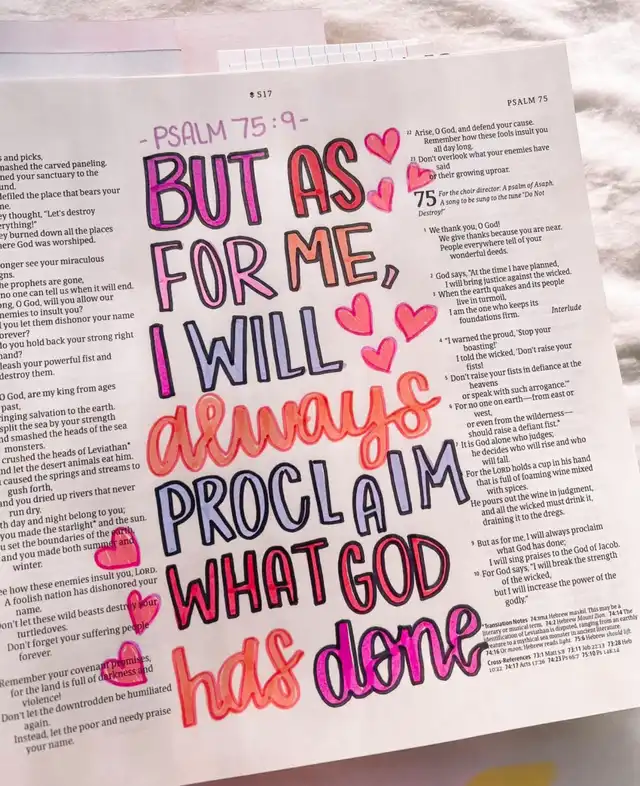 517
PSALM 75
- PSALM 75:9 -
BUT AS
FOR ME,
I WILL
always
PROCLAIM
WHAT GOD
has done
s and picks,
mashed the carved paneling.
ned your sanctuary to the
und.
defiled the place that bears your
me.
ey thought, "Let's destroy
erything!"
ey burned down all the places
here God was worshiped.
onger see your miraculous
gns.
he prophets are gone,
no one can tell us when it will end.
ong, O God, will you allow our
nemies to insult you?
l you let them dishonor your name
orever?
do you hold back your strong right
hand?
leash your powerful fist and
destroy them.
O God, are my king from ages
past,
ringing salvation to the earth.
split the sea by your strength
nd smashed the heads of the sea
monsters.
crushed the heads of Leviathan*
nd let the desert animals eat him.
caused the springs and streams to
gush forth,
and you dried up rivers that never
run dry.
th day and night belong to you;
you made the starlight* and the sun.
u set the boundaries of the earth,
and you made both summer and
winter.
ee how these enemies insult you, LORD.
A foolish nation has dishonored your
name.
on't let these wild beasts destroy your
turtledoves.
Don't forget your suffering people
forever.
Remember your covenant promises,
for the land is full of darkness and
violence!
Don't let the downtrodden be humiliated
again.
Instead, let the poor and needy praise
your name.
22 Arise, O God, and defend your cause.
Remember how these fools insult you
all day long.
23 Don't overlook what your enemies have
said
or their growing uproar.
75 For the choir director: A psalm of Asaph.
A song to be sung to the tune "Do Not
Destroy!"
1 We thank you, O God!
We give thanks because you are near.
People everywhere tell of your
wonderful deeds.
2 God says, "At the time I have planned,
I will bring justice against the wicked.
3 When the earth quakes and its people
live in turmoil,
I am the one who keeps its
foundations firm. Interlude
4 "I warned the proud, 'Stop your
boasting!'
I told the wicked, 'Don't raise your
fists!
5 Don't raise your fists in defiance at the
heavens
or speak with such arrogance.'"
6 For no one on earth—from east or
west,
or even from the wilderness—
should raise a defiant fist.*
7 It is God alone who judges;
he decides who will rise and who
will fall.
For the LORD holds a cup in his hand
that is full of foaming wine mixed
with spices.
He pours out the wine in judgment,
and all the wicked must drink it,
draining it to the dregs.
9 But as for me, I will always proclaim
what God has done;
I will sing praises to the God of Jacob.
10 For God says, "I will break the strength
of the wicked,
but I will increase the power of the
godly."